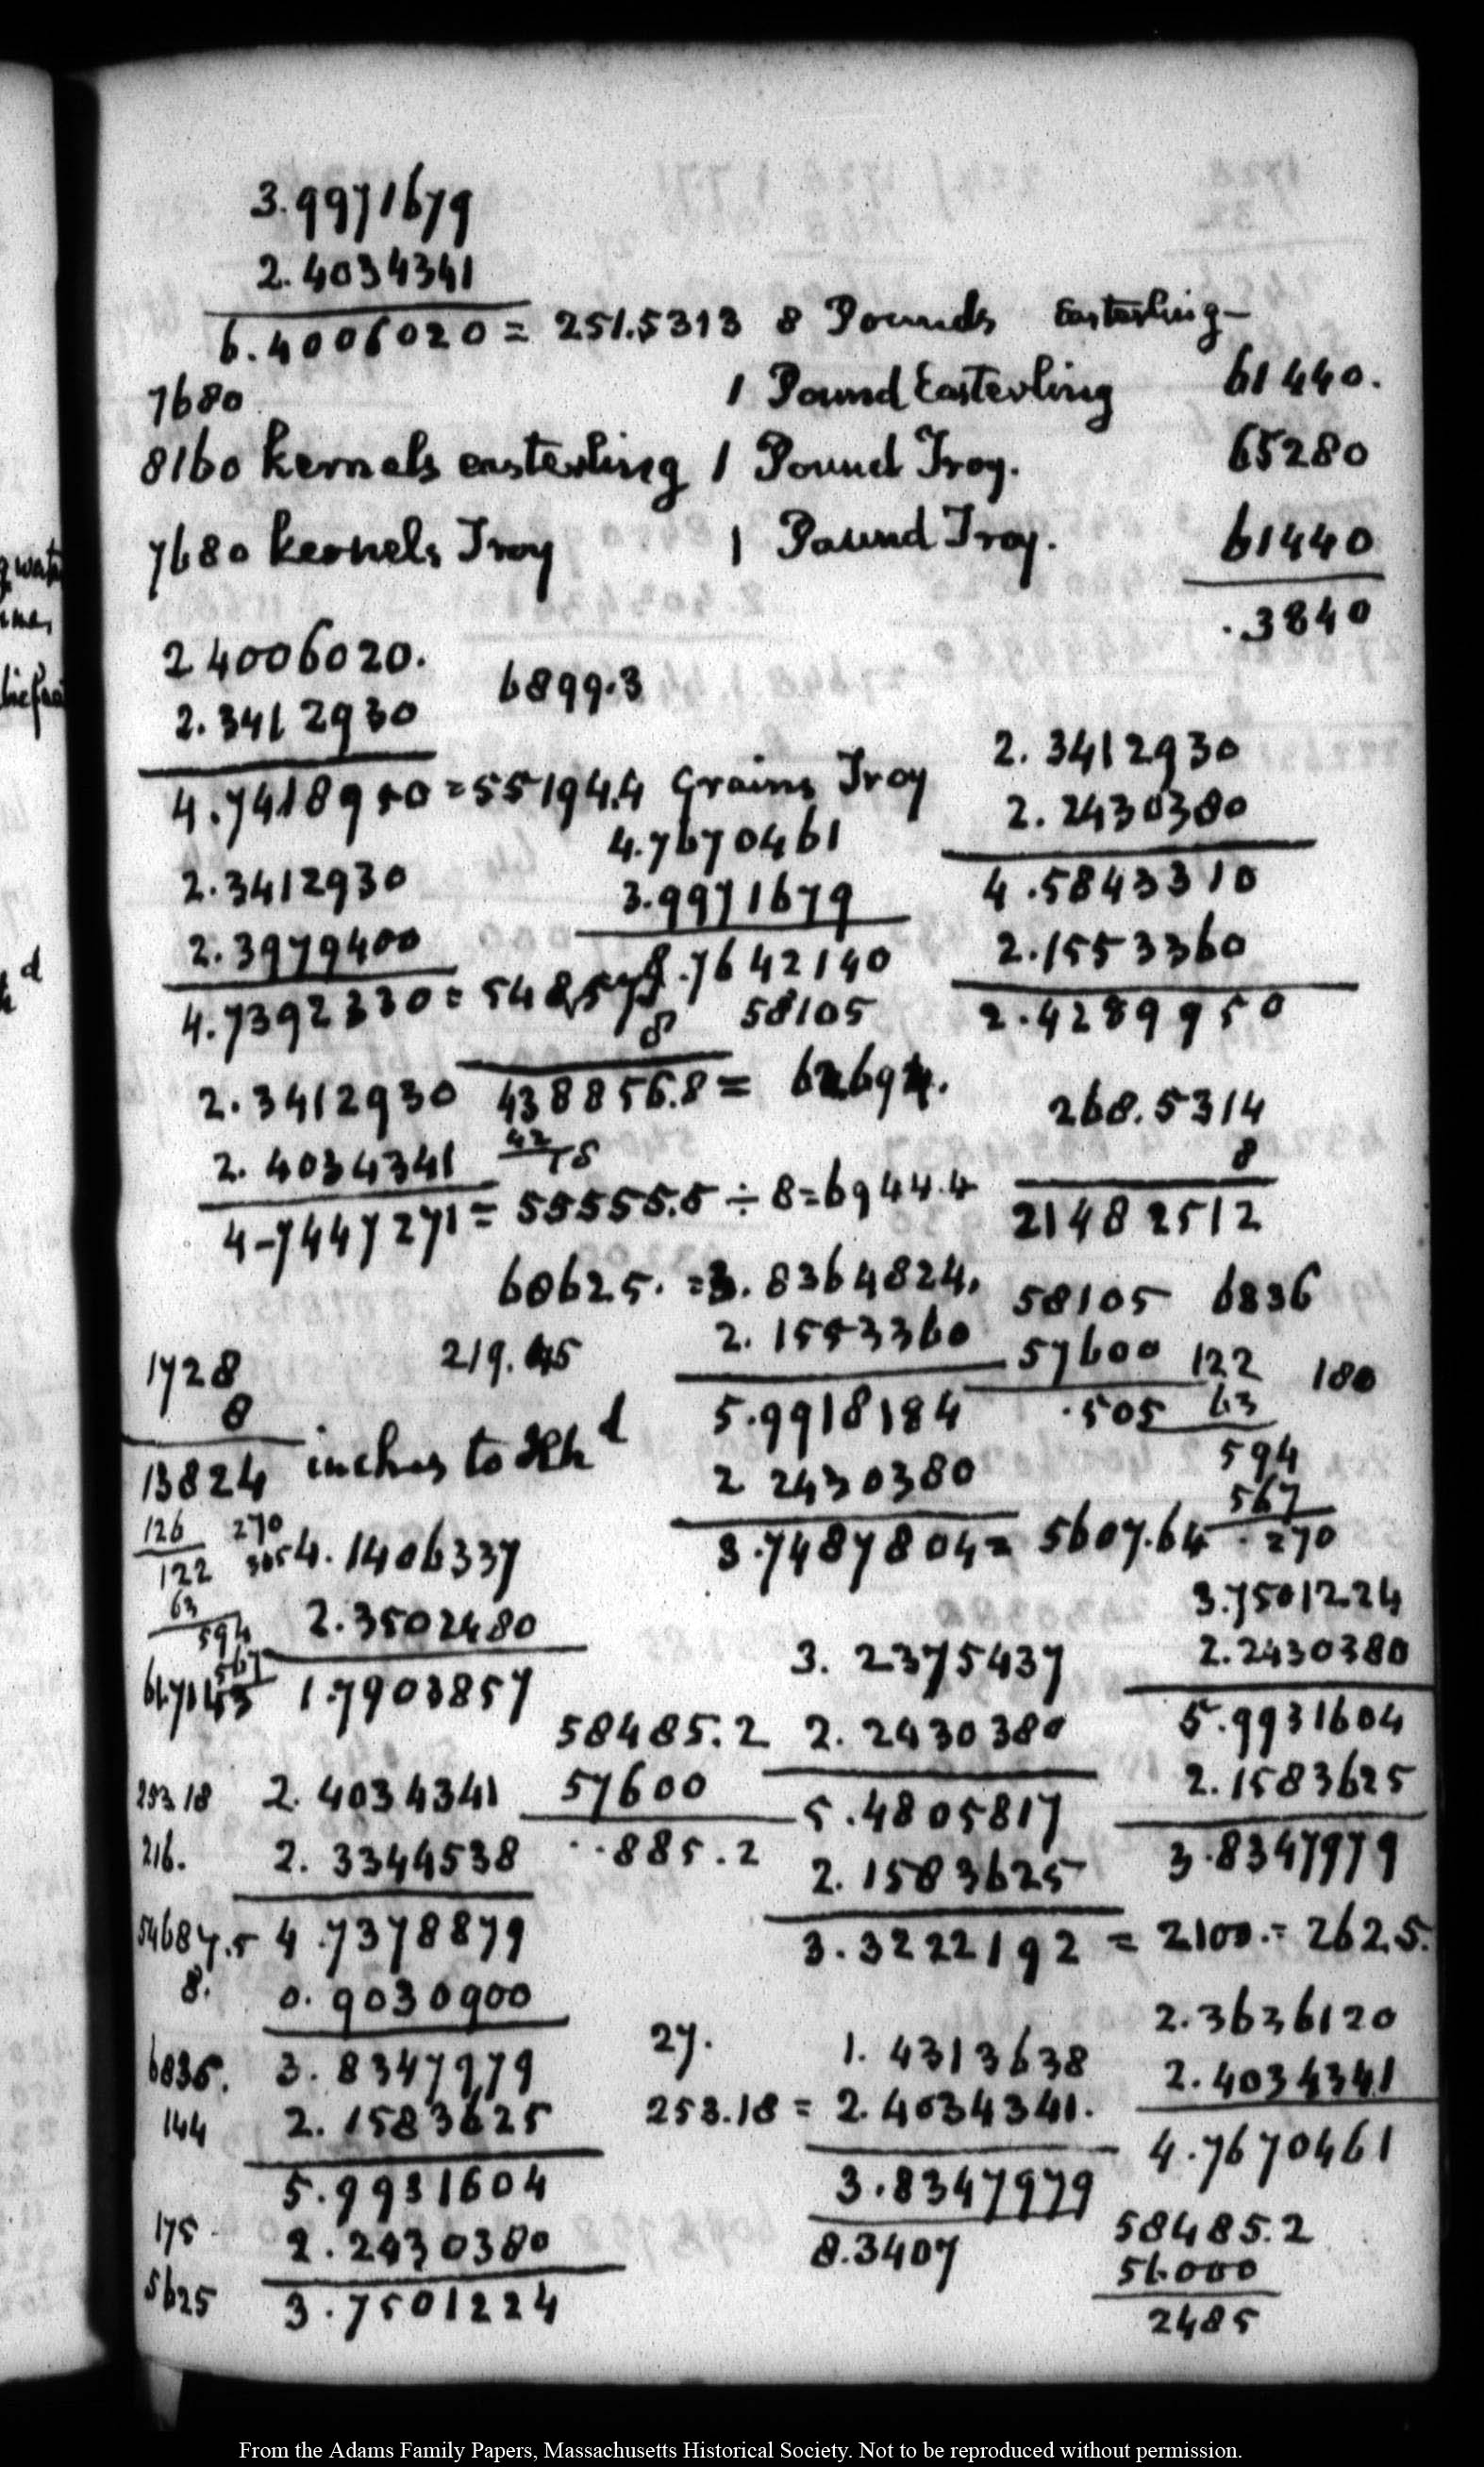 3.9971679
2.4034341
6.4006020 = 251.5313 8 Pounds Easterling
7680 1 Pound Easterling 61440.
8160 kernels easterling 1 Pound Troy. 65280
7680 kernels Troy 1 Pound Troy. 61440
.3840
24006020.
2.3412930 6899.3
4.7418950 = 55194.4 Grains Troy
2.3412930
2.3979400
4.7392330 = 54857.1
8
438856.8 = 
4.7670461
3.9971679
8.7642140
58105
2.3412930
2.2430380
4.5843310
2.1553360
2.4289950
268.5314
8
21482512
2.3412930
2.4034341
4-7447271 = 55555.5 ÷ 8 = 6944.4
60625. = 3.8364824.
219.45 2.1553360
5.9918184
2 2430380
3.7487804 = 5607.64
58105
57600
.505
6836
122
63
594
567
.270
180
1728
8
13824 inches to Hhd
126
122
63
594
567
61.7143
270
4.1406337
2.3502480
1.7903857
3.7501224
2.2430380
5.9931604
2.1583625
3.8347979
58485.2
57600
..885.2
3.2375437
2.2430380
5.4805817
2.1583625
3.3222192 = 2100. = 262.5.
253.18 2.4034341
216. 2.3344538
54687.5 4.7378879
8. 0.9030900
6836. 3.8347979
144 2.1583625
5.9931604
175 2.2430380
5625 3.7501224
27. 1.4313638
253.18 = 2.4034341.
3.8347979
8.3407
2.3636120
2.4034341
4.7670461
58485.2
56000
2485
From the Adams Family Papers, Massachusetts Historical Society. Not to be reproduced without permission.